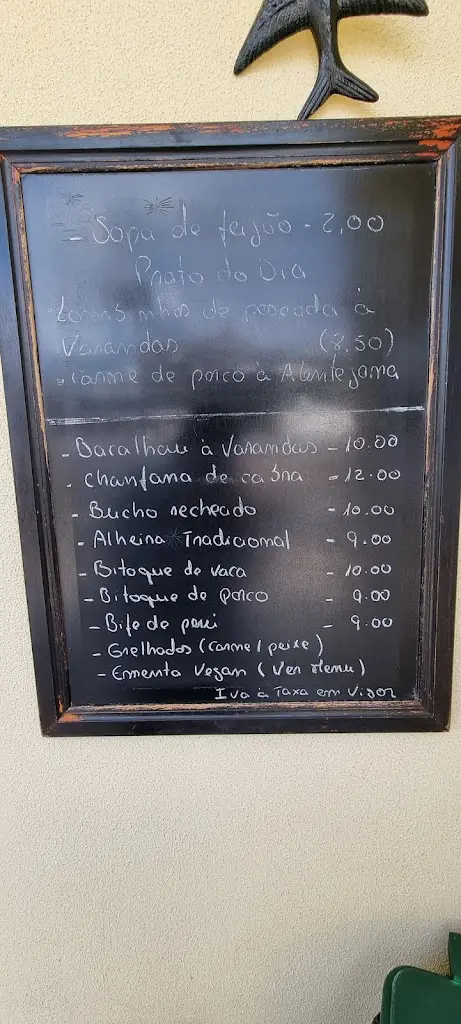 - Sopa de feijão - 2,00
Prato do Dia
de pescada à
Varandas (8,50)
- Carne de porco à Alentejana
- Bacalhau à Varandas - 10.00
- Chanfana de cabra - 12.00
- Bucho recheado - 10.00
- Alheira Tradicional - 9.00
- Bitoque de vaca - 10.00
- Bitoque de porco - 9.00
- Bife de peru - 9.00
- Grelhados (carne / peixe)
- Ementa Vegan (Ver Menu)
Iva à Taxa em Vigor